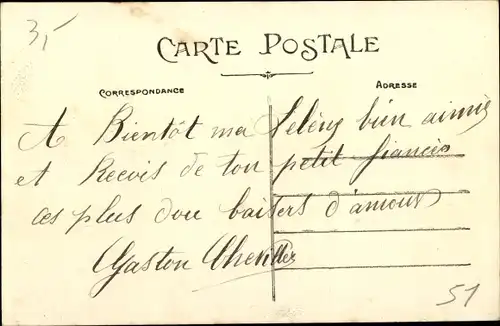 3,-
CARTE POSTALE
CORRESPONDANCE
ADRESSE
A Bientôt ma bien aimée
et Recois de ton petit fiancés
ces plus dou baisers d'amour
Gaston
51